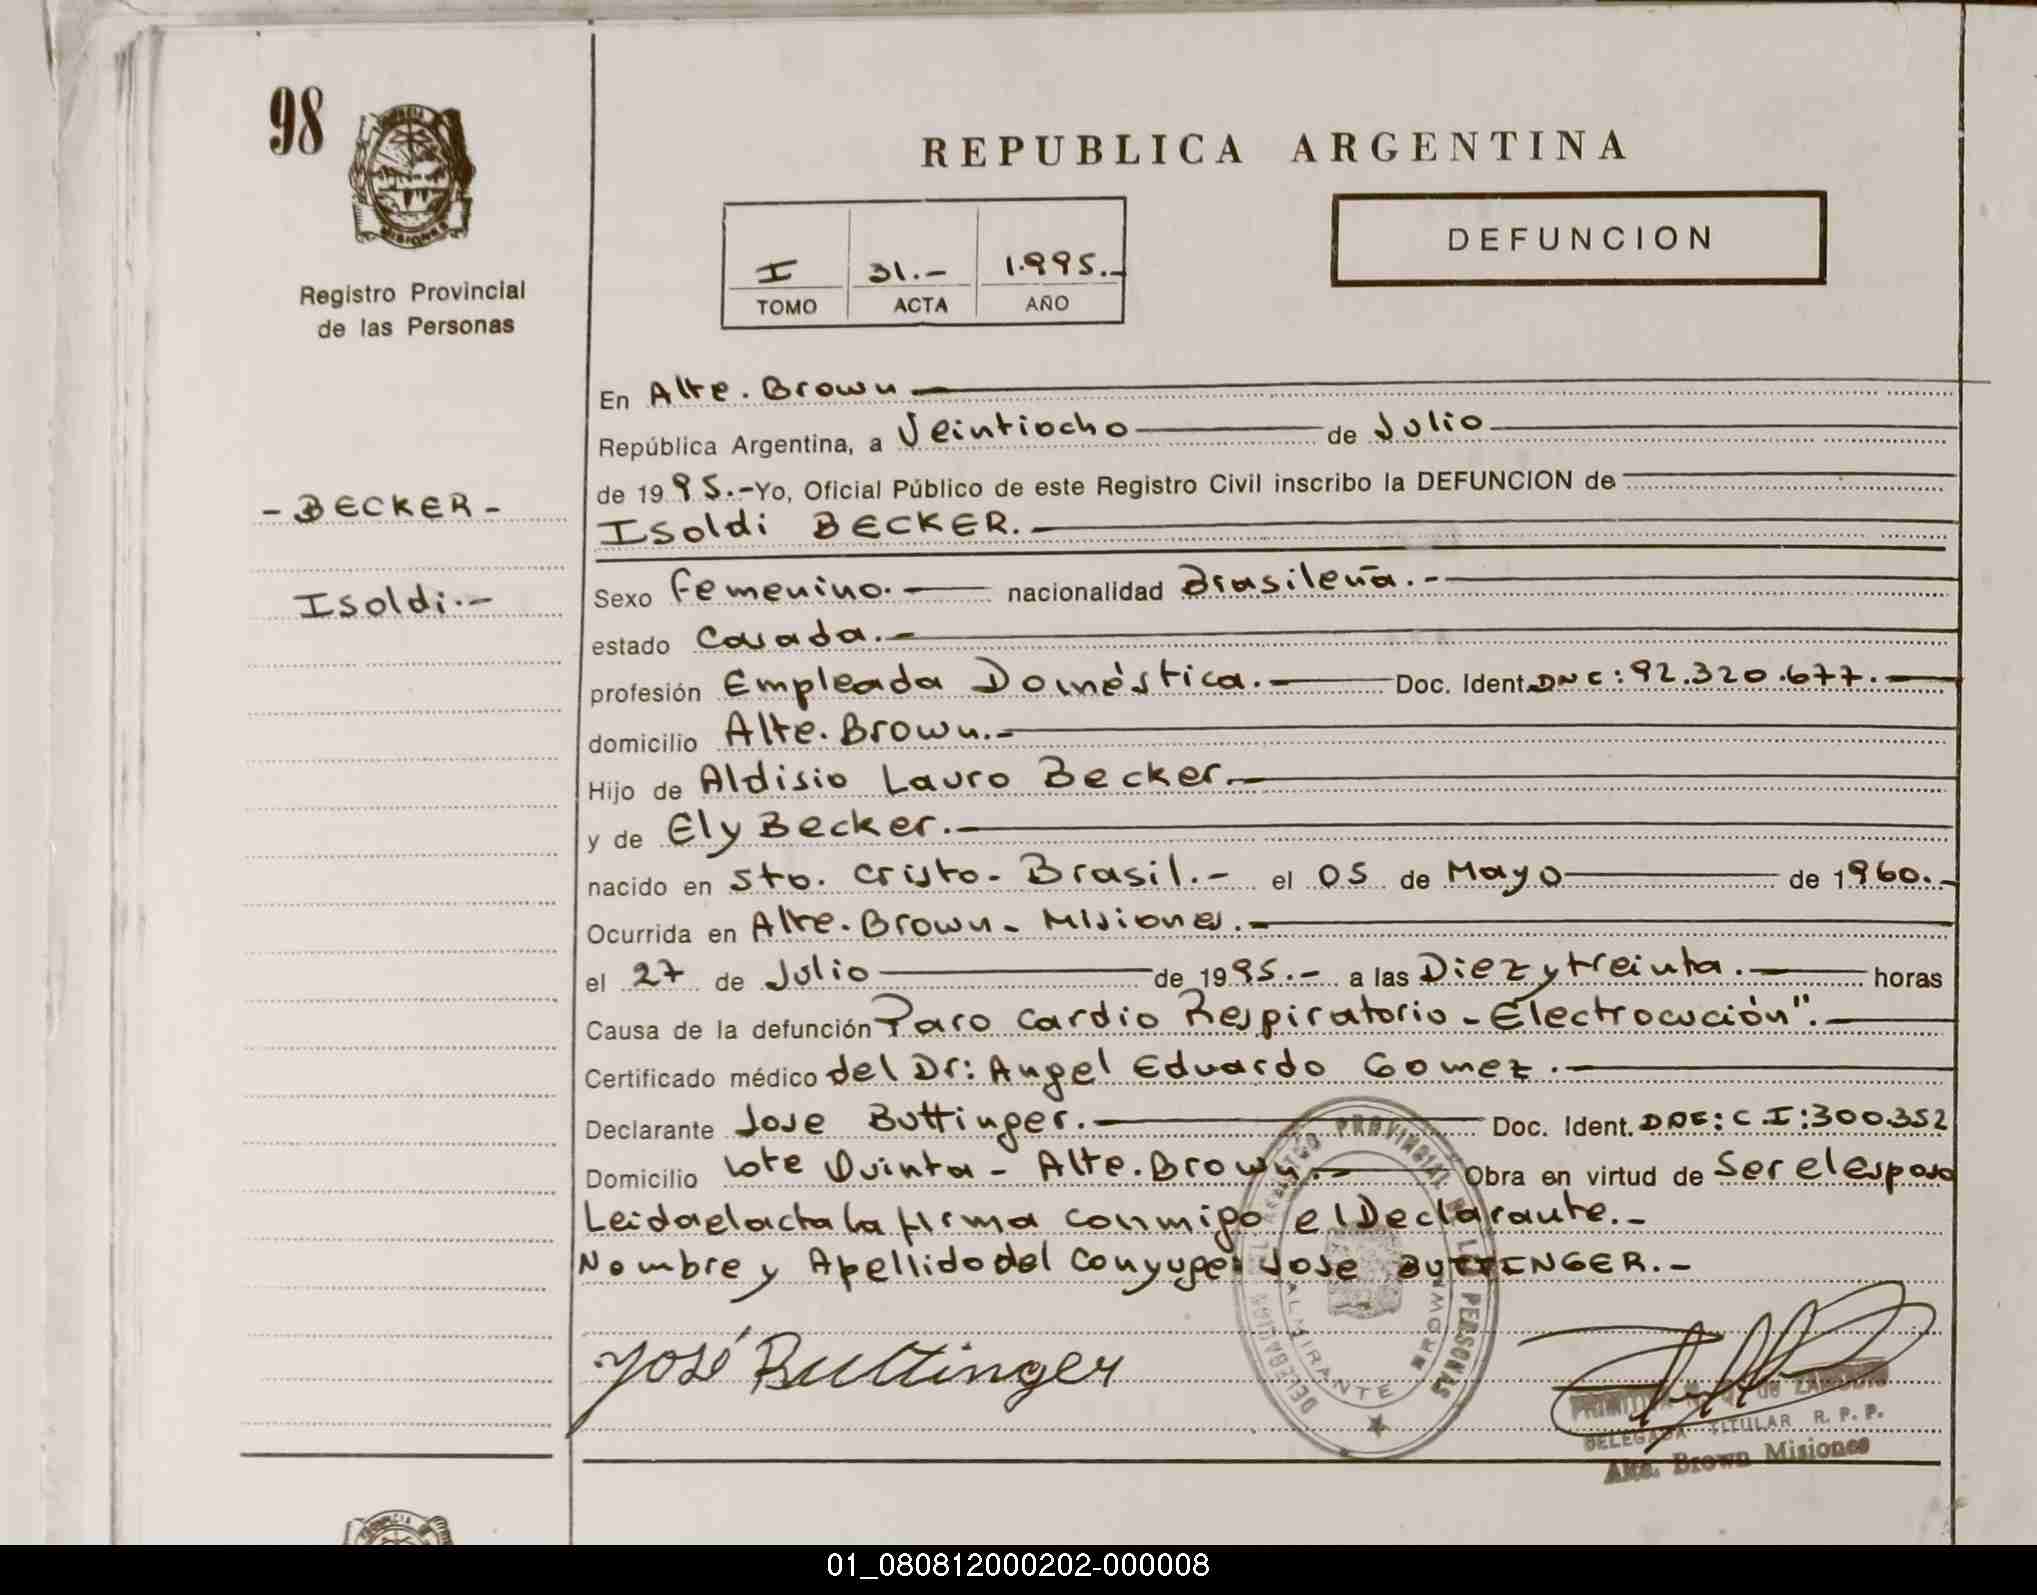 98
MISIONES
Registro Provincial
de las Personas
- BECKER -
Isoldi.-
REPUBLICA ARGENTINA
DEFUNCION
I 31.- 1.995.-
TOMO ACTA AÑO
En Alte. Brown
República Argentina, a Veintiocho de Julio
de 1995.- Yo, Oficial Público de este Registro Civil inscribo la DEFUNCION de
Isoldi BECKER.
Sexo Femenino. nacionalidad Brasileña.-
estado Casada.-
profesión Empleada Doméstica.- Doc. Ident. DNC: 92.320.677.-
domicilio Alte. Brown.-
Hijo de Aldisio Lauro Becker.-
y de Ely Becker.-
nacido en Sto. Cristo - Brasil.- el 05 de Mayo de 1960.-
Ocurrida en Alte. Brown - Misiones.-
el 27 de Julio de 1995.- a las Diez y treinta.- horas
Causa de la defunción Paro Cardio Respiratorio - Electrocución".-
Certificado médico del Dr: Angel Eduardo Gomez.-
Declarante Jose Buttinger.- Doc. Ident. DOE: C.I: 300.352
Domicilio Lote Quinta - Alte. Brown.- Obra en virtud de Ser el esposo
Leida el acta la firma conmigo el Declarante.-
Nombre y Apellido del Conyuge: Jose BUTTINGER.-
José Buttinger
REGISTRO PROVINCIAL DE LAS PERSONAS
DELEGACION
ALMIRANTE BROWN
de
DELEGADA TITULAR R. P. P.
Alte. Brown Misiones
01_080812000202-000008